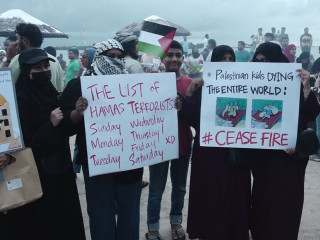 THE LIST OF
HAMAS TERRORISTS
Sunday Wednesday
Monday Thursday
Tuesday Friday XD
Saturday
Palestinian kids DYING
THE ENTIRE WORLD :
# CEASE FIRE